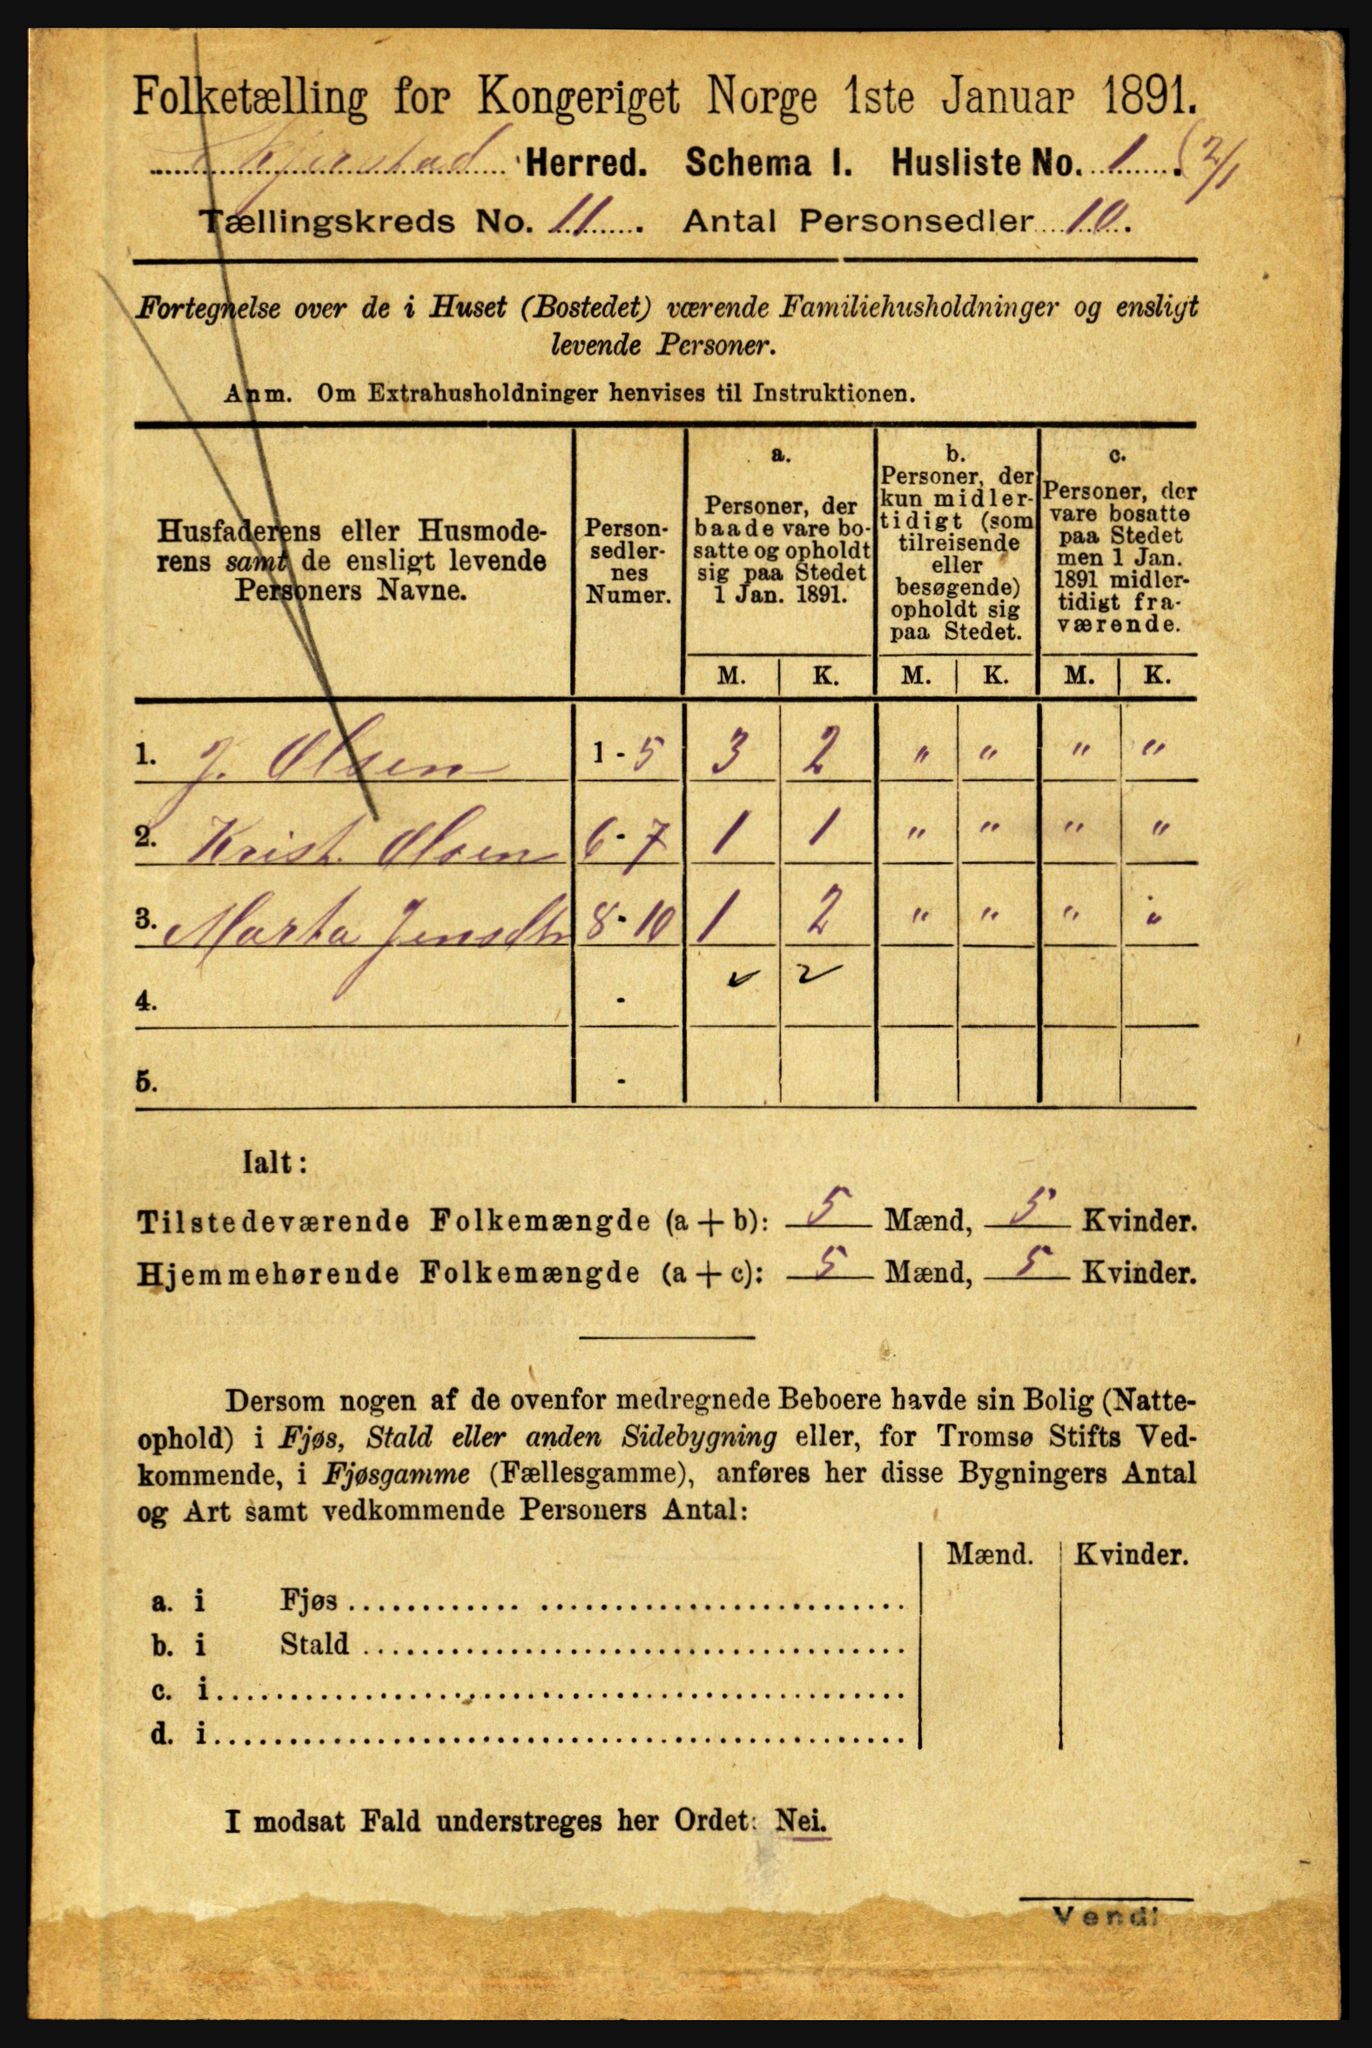 Folketælling for Kongeriget Norge 1ste Januar 1891.
Skjerstad Herred. Schema I. Husliste No. 1. (2/1
Tællingskreds No. 11. Antal Personsedler 10.
Fortegnelse over de i Huset (Bostedet) værende Familiehusholdninger og ensligt
levende Personer.
Anm. Om Extrahusholdninger henvises til Instruktionen.
Husfaderens eller Husmode-
rens samt de ensligt levende
Personers Navne.
Person-
sedler-
nes
Numer.
a.
Personer, der
baade vare bo-
satte og opholdt
sig paa Stedet
1 Jan. 1891.
b.
Personer, der
kun midler-
tidigt (som
tilreisende
eller
besøgende)
opholdt sig
paa Stedet.
c.
Personer, der
vare bosatte
paa Stedet
men 1 Jan.
1891 midler-
tidigt fra-
værende.
M. K. M. K. M. K.
1. J. Olsen 1 - 5 3 2 " " " "
2. Krist. Olsen 6 - 7 1 1 " " " "
3. Marta Jensdtr 8 - 10 1 2 " " " "
4. -
5. -
Ialt:
Tilstedeværende Folkemængde (a + b): 5 Mænd, 5 Kvinder.
Hjemmehørende Folkemængde (a + c): 5 Mænd, 5 Kvinder.
Dersom nogen af de ovenfor medregnede Beboere havde sin Bolig (Natte-
ophold) i Fjøs, Stald eller anden Sidebygning eller, for Tromsø Stifts Ved-
kommende, i Fjøsgamme (Fællesgamme), anføres her disse Bygningers Antal
og Art samt vedkommende Personers Antal:
Mænd. Kvinder.
a. i Fjøs
b. i Stald
c. i
d. i
I modsat Fald understreges her Ordet: Nei.
Vend!